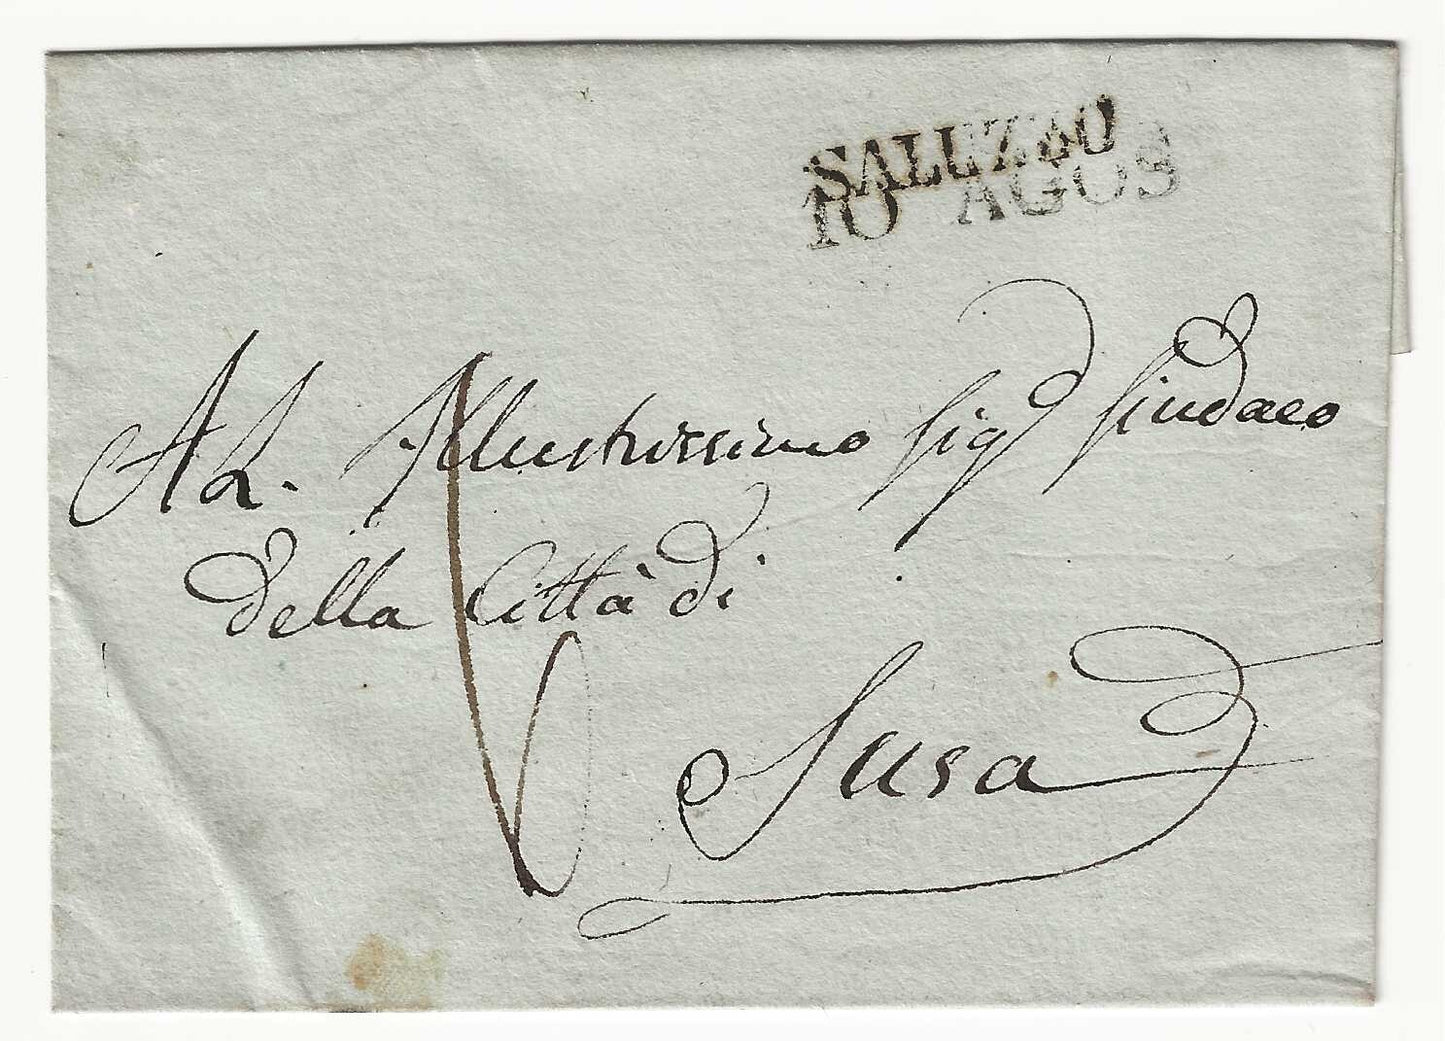 SALUZZO
10 AGOS
All. Illustrissimo Sig.r Sindaco
della Città di
Susa
6